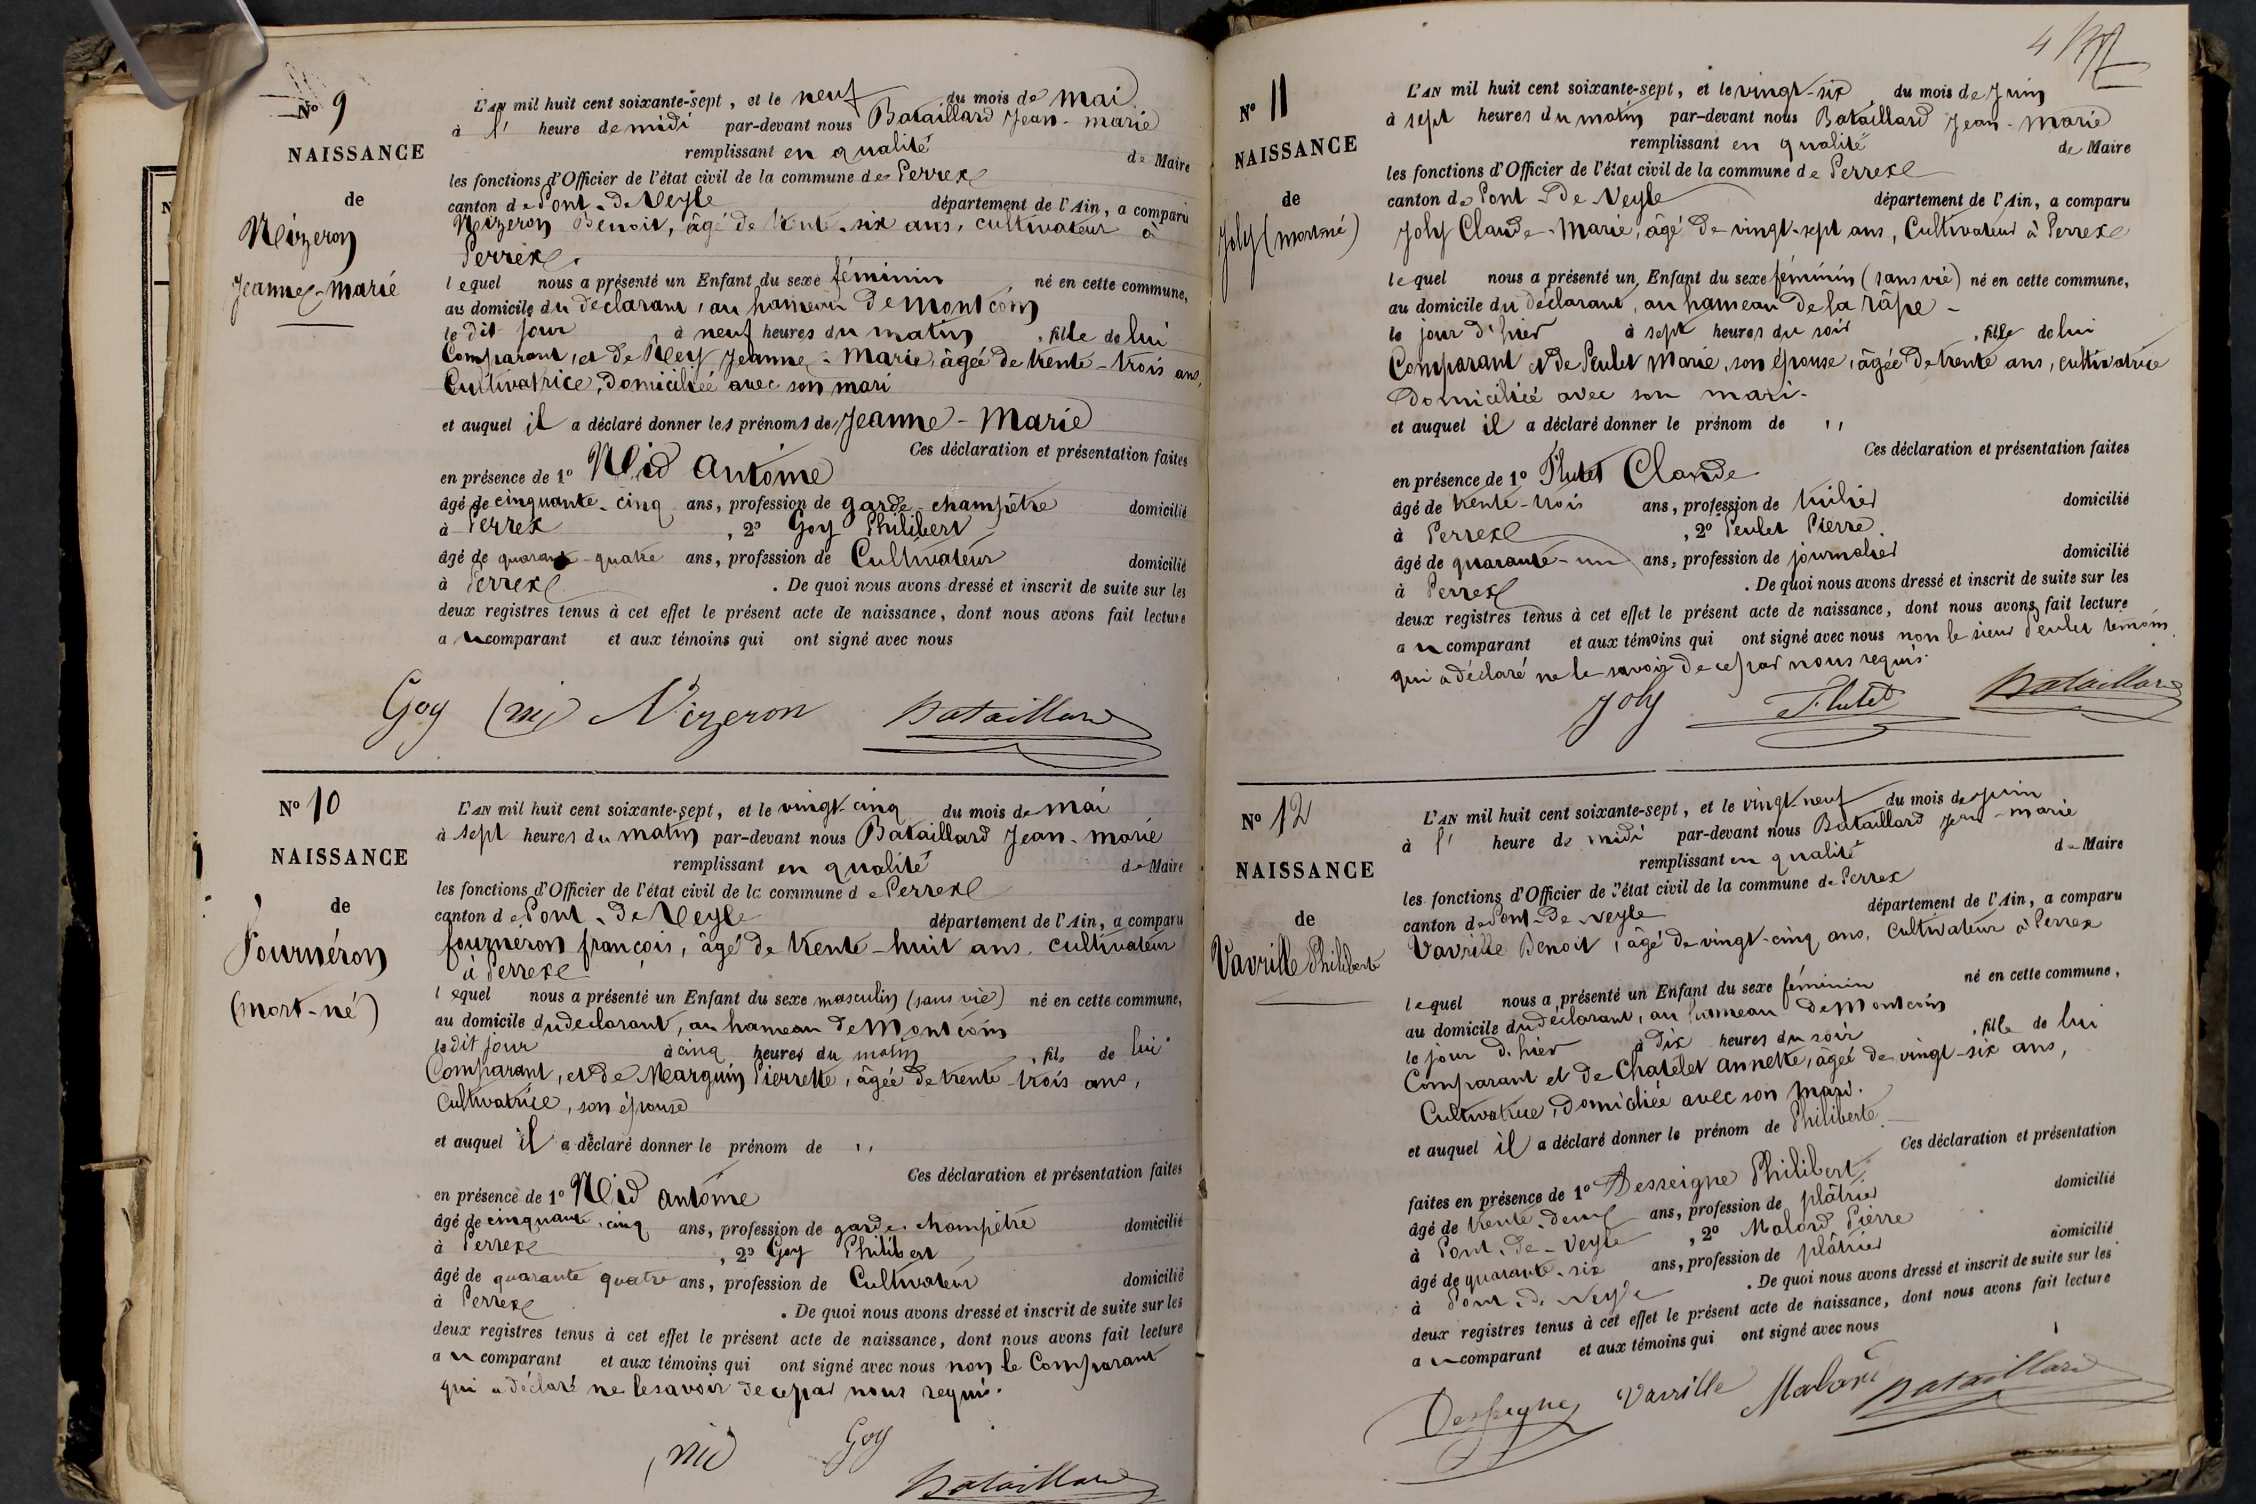 Nº 9
NAISSANCE
de
Nizeron
Jeanne-Marie
L'AN mil huit cent soixante-sept, et le neuf du mois de mai
à l' heure de midi par-devant nous Bataillard Jean-marie
remplissant en qualité de Maire
les fonctions d'Officier de l'état civil de la commune de Perrex
canton de Pont-de Veyle département de l'Ain, a comparu
Nizeron Benoit, âgé de trente-six ans, cultivateur à
Perrex.
lequel nous a présenté un Enfant du sexe féminin né en cette commune,
au domicile du déclarant, au hameau de montcoin
le dit jour à neuf heures du matin, fille de lui
Comparant, et de Ney Jeanne-Marie, âgée de trente-trois ans,
Cultivatrice, domiciliée avec son mari
et auquel il a déclaré donner les prénoms de Jeanne-Marie
Ces déclaration et présentation faites
en présence de 1º Nid antoine
âgé de cinquante-cinq ans, profession de garde-champêtre domicilié
à Perrex, 2º Goy Philibert
âgé de quarante-quatre ans, profession de Cultivateur domicilié
à Perrex. De quoi nous avons dressé et inscrit de suite sur les
deux registres tenus à cet effet le présent acte de naissance, dont nous avons fait lecture
au comparant et aux témoins qui ont signé avec nous
Goy nid Nizeron Bataillard
Nº 10
NAISSANCE
de
Fournéron
(mort-né)
L'AN mil huit cent soixante-sept, et le vingt-cinq du mois de mai
à sept heures du matin par-devant nous Bataillard Jean-marie
remplissant en qualité de Maire
les fonctions d'Officier de l'état civil de la commune de Perrex
canton de Pont-de Veyle département de l'Ain, a comparu
fournéron françois, âgé de trente-huit ans, cultivateur
à Perrex
lequel nous a présenté un Enfant du sexe masculin (sans vie) né en cette commune,
au domicile du déclarant, au hameau de Montcoin
le dit jour à cinq heures du matin, fils de lui
Comparant, et de Marguin Pierrette, âgée de trente-trois ans,
Cultivatrice, son épouse
et auquel il a déclaré donner le prénom de ,,
Ces déclaration et présentation faites
en présence de 1º Nid antoine
âgé de cinquante-cinq ans, profession de garde-champêtre domicilié
à Perrex, 2º Goy Philibert
âgé de quarante quatre ans, profession de Cultivateur domicilié
à Perrex. De quoi nous avons dressé et inscrit de suite sur les
deux registres tenus à cet effet le présent acte de naissance, dont nous avons fait lecture
au comparant et aux témoins qui ont signé avec nous non le Comparant
qui a déclaré ne le savoir de ce par nous requis.
nid Goy
Bataillard
4
Nº 11
NAISSANCE
de
Joly (mort né)
L'AN mil huit cent soixante-sept, et le vingt-six du mois de Juin
à sept heures du matin par-devant nous Bataillard Jean-Marie
remplissant en qualité de Maire
les fonctions d'Officier de l'état civil de la commune de Perrex
canton de Pont-de Veyle département de l'Ain, a comparu
Joly Claude-Marie, âgé de vingt-sept ans, Cultivateur à Perrex
lequel nous a présenté un Enfant du sexe féminin (sans vie) né en cette commune,
au domicile du déclarant, au hameau de la râpe -
le jour d'hier à sept heures du soir, fille de lui
Comparant et de Peulet Marie, son épouse, âgée de trente ans, cultivatrice
domiciliée avec son mari-
et auquel il a déclaré donner le prénom de ,,
Ces déclaration et présentation faites
en présence de 1º Flutet Claude
âgé de trente-trois ans, profession de tuilier domicilié
à Perrex, 2º Peulet Pierre
âgé de quarante-un ans, profession de journalier domicilié
à Perrex. De quoi nous avons dressé et inscrit de suite sur les
deux registres tenus à cet effet le présent acte de naissance, dont nous avons fait lecture
au comparant et aux témoins qui ont signé avec nous non le sieur Peulet témoin
qui a déclaré ne le savoir de ce par nous requis.
Joly Flutet Bataillard
Nº 12
NAISSANCE
de
Vavrille Philiberte
L'AN mil huit cent soixante-sept, et le vingt-neuf du mois de Juin
à l' heure de midi par-devant nous Bataillard Jean-marie
remplissant en qualité de Maire
les fonctions d'Officier de l'état civil de la commune de Perrex
canton de Pont-de Veyle département de l'Ain, a comparu
Vavrille Benoit, âgé de vingt-cinq ans, Cultivateur à Perrex
lequel nous a présenté un Enfant du sexe féminin né en cette commune,
au domicile du déclarant, au hameau de Montcoin
le jour d'hier à dix heures du soir, fille de lui
Comparant et de Chatelet annette, âgée de vingt-six ans,
Cultivatrice, domiciliée avec son mari.
et auquel il a déclaré donner le prénom de Philiberte.
Ces déclaration et présentation
faites en présence de 1º Desseigne Philibert
âgé de trente-deux ans, profession de plâtrier domicilié
à Pont-de-Veyle, 2º Malord Pierre
âgé de quarante-six ans, profession de plâtrier domicilié
à Pont-de Veyle. De quoi nous avons dressé et inscrit de suite sur les
deux registres tenus à cet effet le présent acte de naissance, dont nous avons fait lecture
au comparant et aux témoins qui ont signé avec nous
Desseigne Vavrille Malord Bataillard